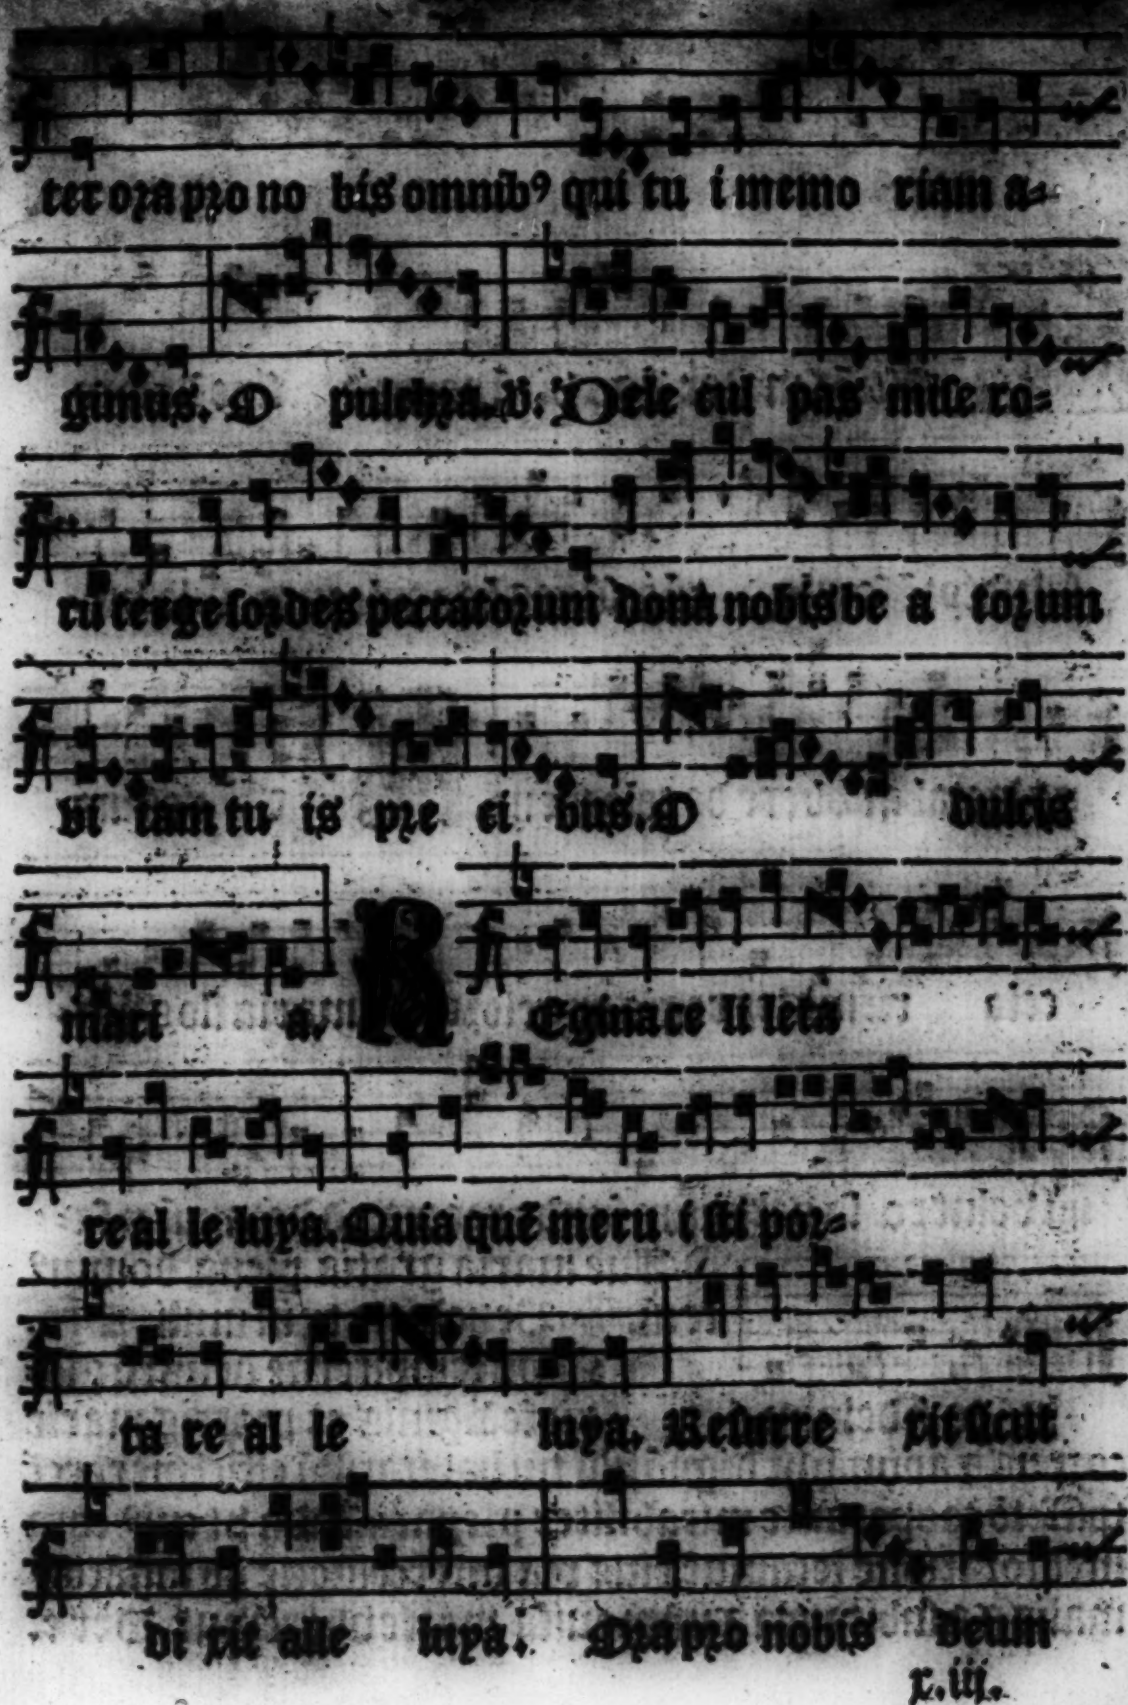 ter ora pro no bis omnibꝰ qui tu i memo riam a⸗
gimus. O pulchra. v̄. Dele cul pas mise ro⸗
rū terge sordes peccatorum dona nobis be a torum
vi tam tu is pre ci bus. O dulcis
mari a. R Egina ce li leta
re al le luya. Quia quē meru i sti por⸗
ta re al le luya. Resurre xit sicut
di xit alle luya. Ora pro nobis deum
r.iij.